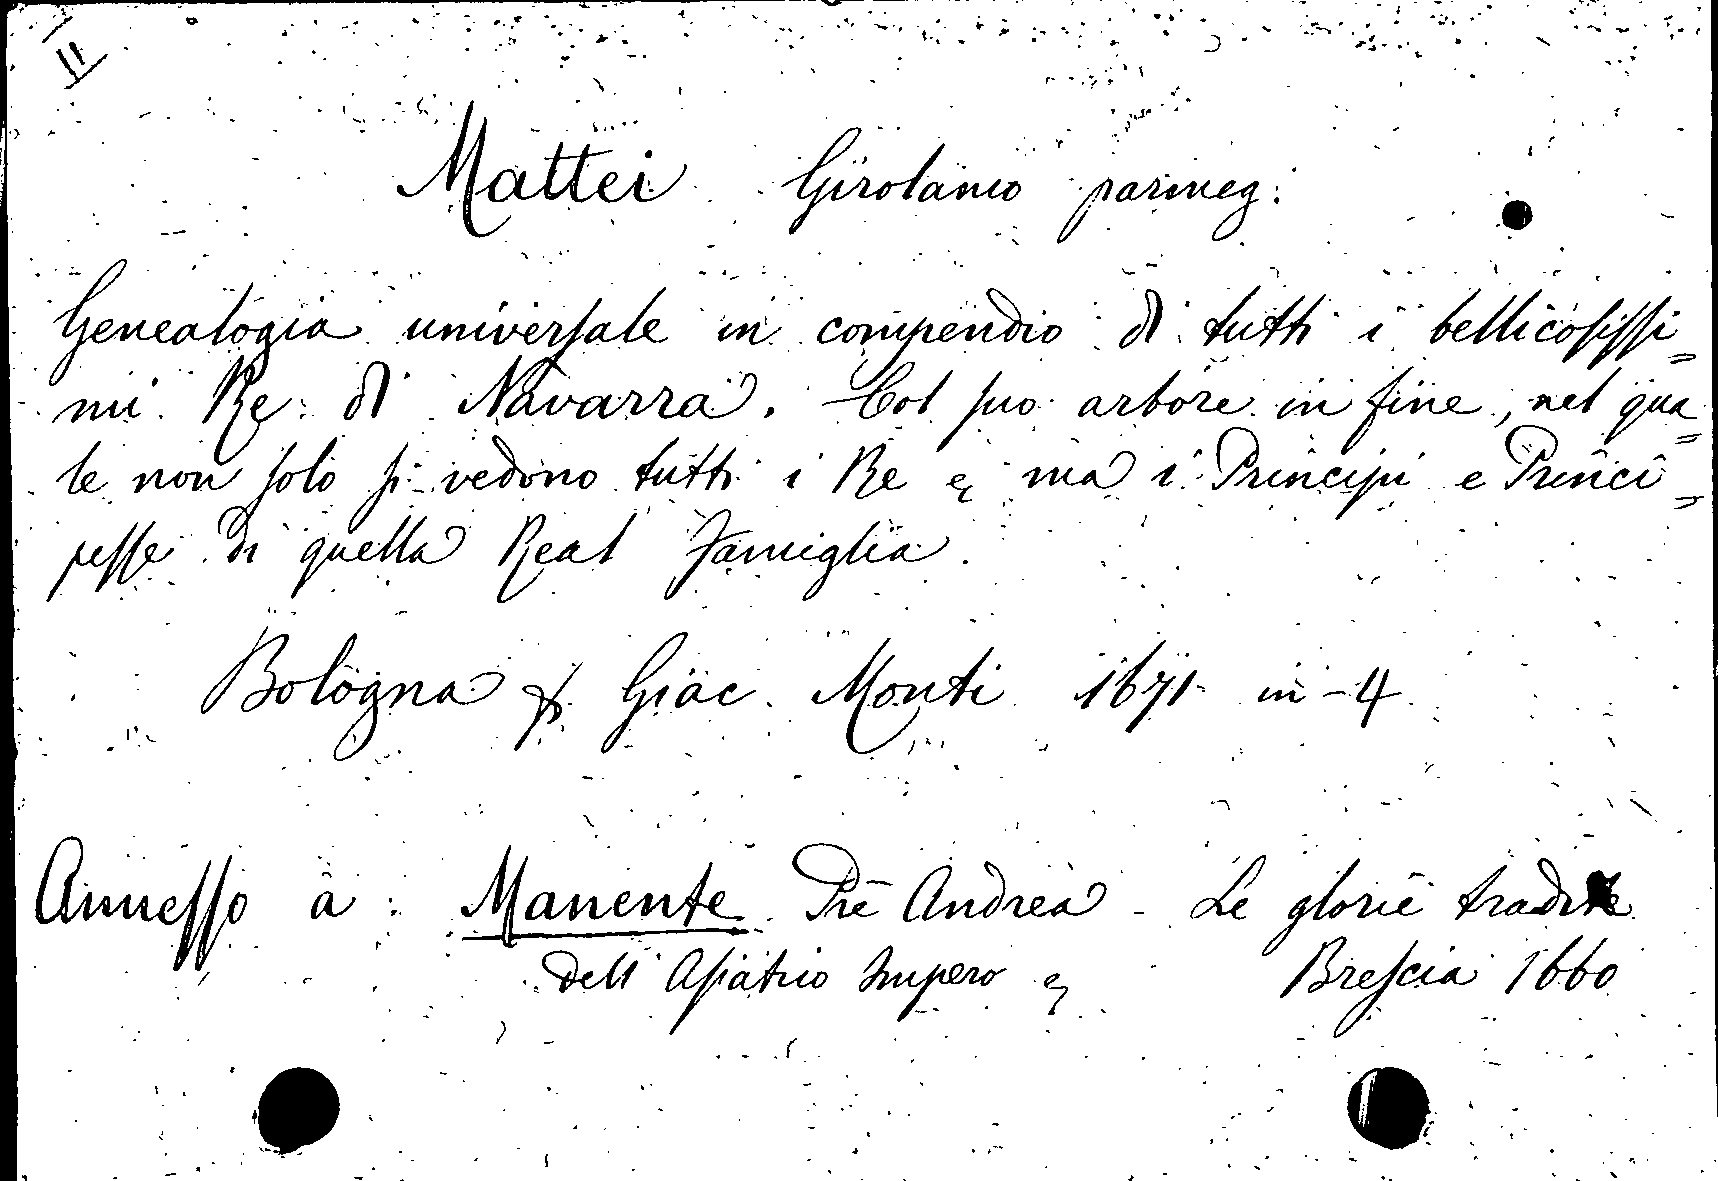 II
Mattei Girolamo parmeg:
Genealogia universale in compendio di tutti i bellicosissi=
mi Re di Navarra. Col suo arbore in fine, nel qua=
le non solo si vedono tutti i Re & ma i Principi e Princi=
pesse di quella Real Famiglia.
Bologna p. Giac. Monti 1671 in-4
Annesso a: Manente Prè Andrea - Le glorie tradite
dell'Asiatico Impero & Brescia 1660